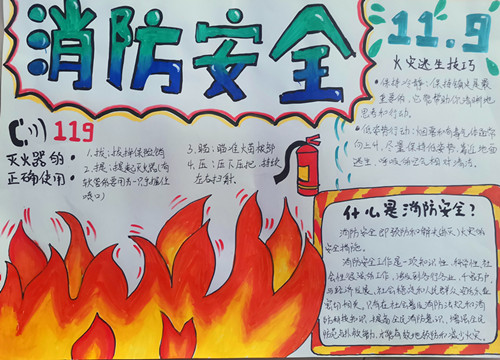 消防安全
11.9
火灾逃生技巧
•保持冷静:保持镇定是最
重要的,它能帮助你清晰地
思考和行动。
•低姿势行动:烟雾和有毒气体通常
向上升,尽量保持低姿势,靠近地面
逃生,呼吸的空气相对清洁。
119
灭火器的
正确使用
1.拔:拔掉保险销
2.提:提起灭火器(有
软管的要用另一只手握住
喷口)
3.瞄:瞄准火苗根部
4.压:压下压把,持续
左右扫射。
什么是消防安全?
消防安全即预防和解决(扑灭)火灾的
安全措施。
消防安全工作是一项知识性、科学性、社
会性很强的工作,涉及到各行各业,千家万户
与经济发展、社会稳定和人民群众安居乐业
密切相关,只有在社会普及消防法规和消
防科技知识,提高全民消防意识,增强全民
防范与扑救能力,才能有效地预防和减少火灾。